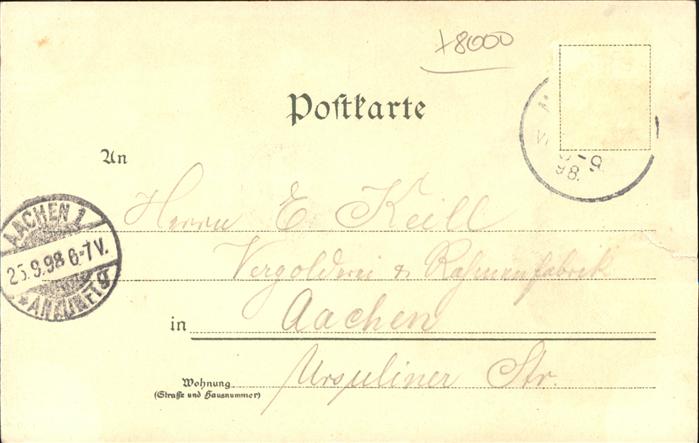 +8000
Postkarte
An
Herrn E. Keill
Vergolderei & Rahmenfabrik
in Aachen
Ursuliner Str.
Wohnung
(Straße und Hausnummer)
AACHEN 1
25.9.98 6-7 V.
*ANKUNFT
98.